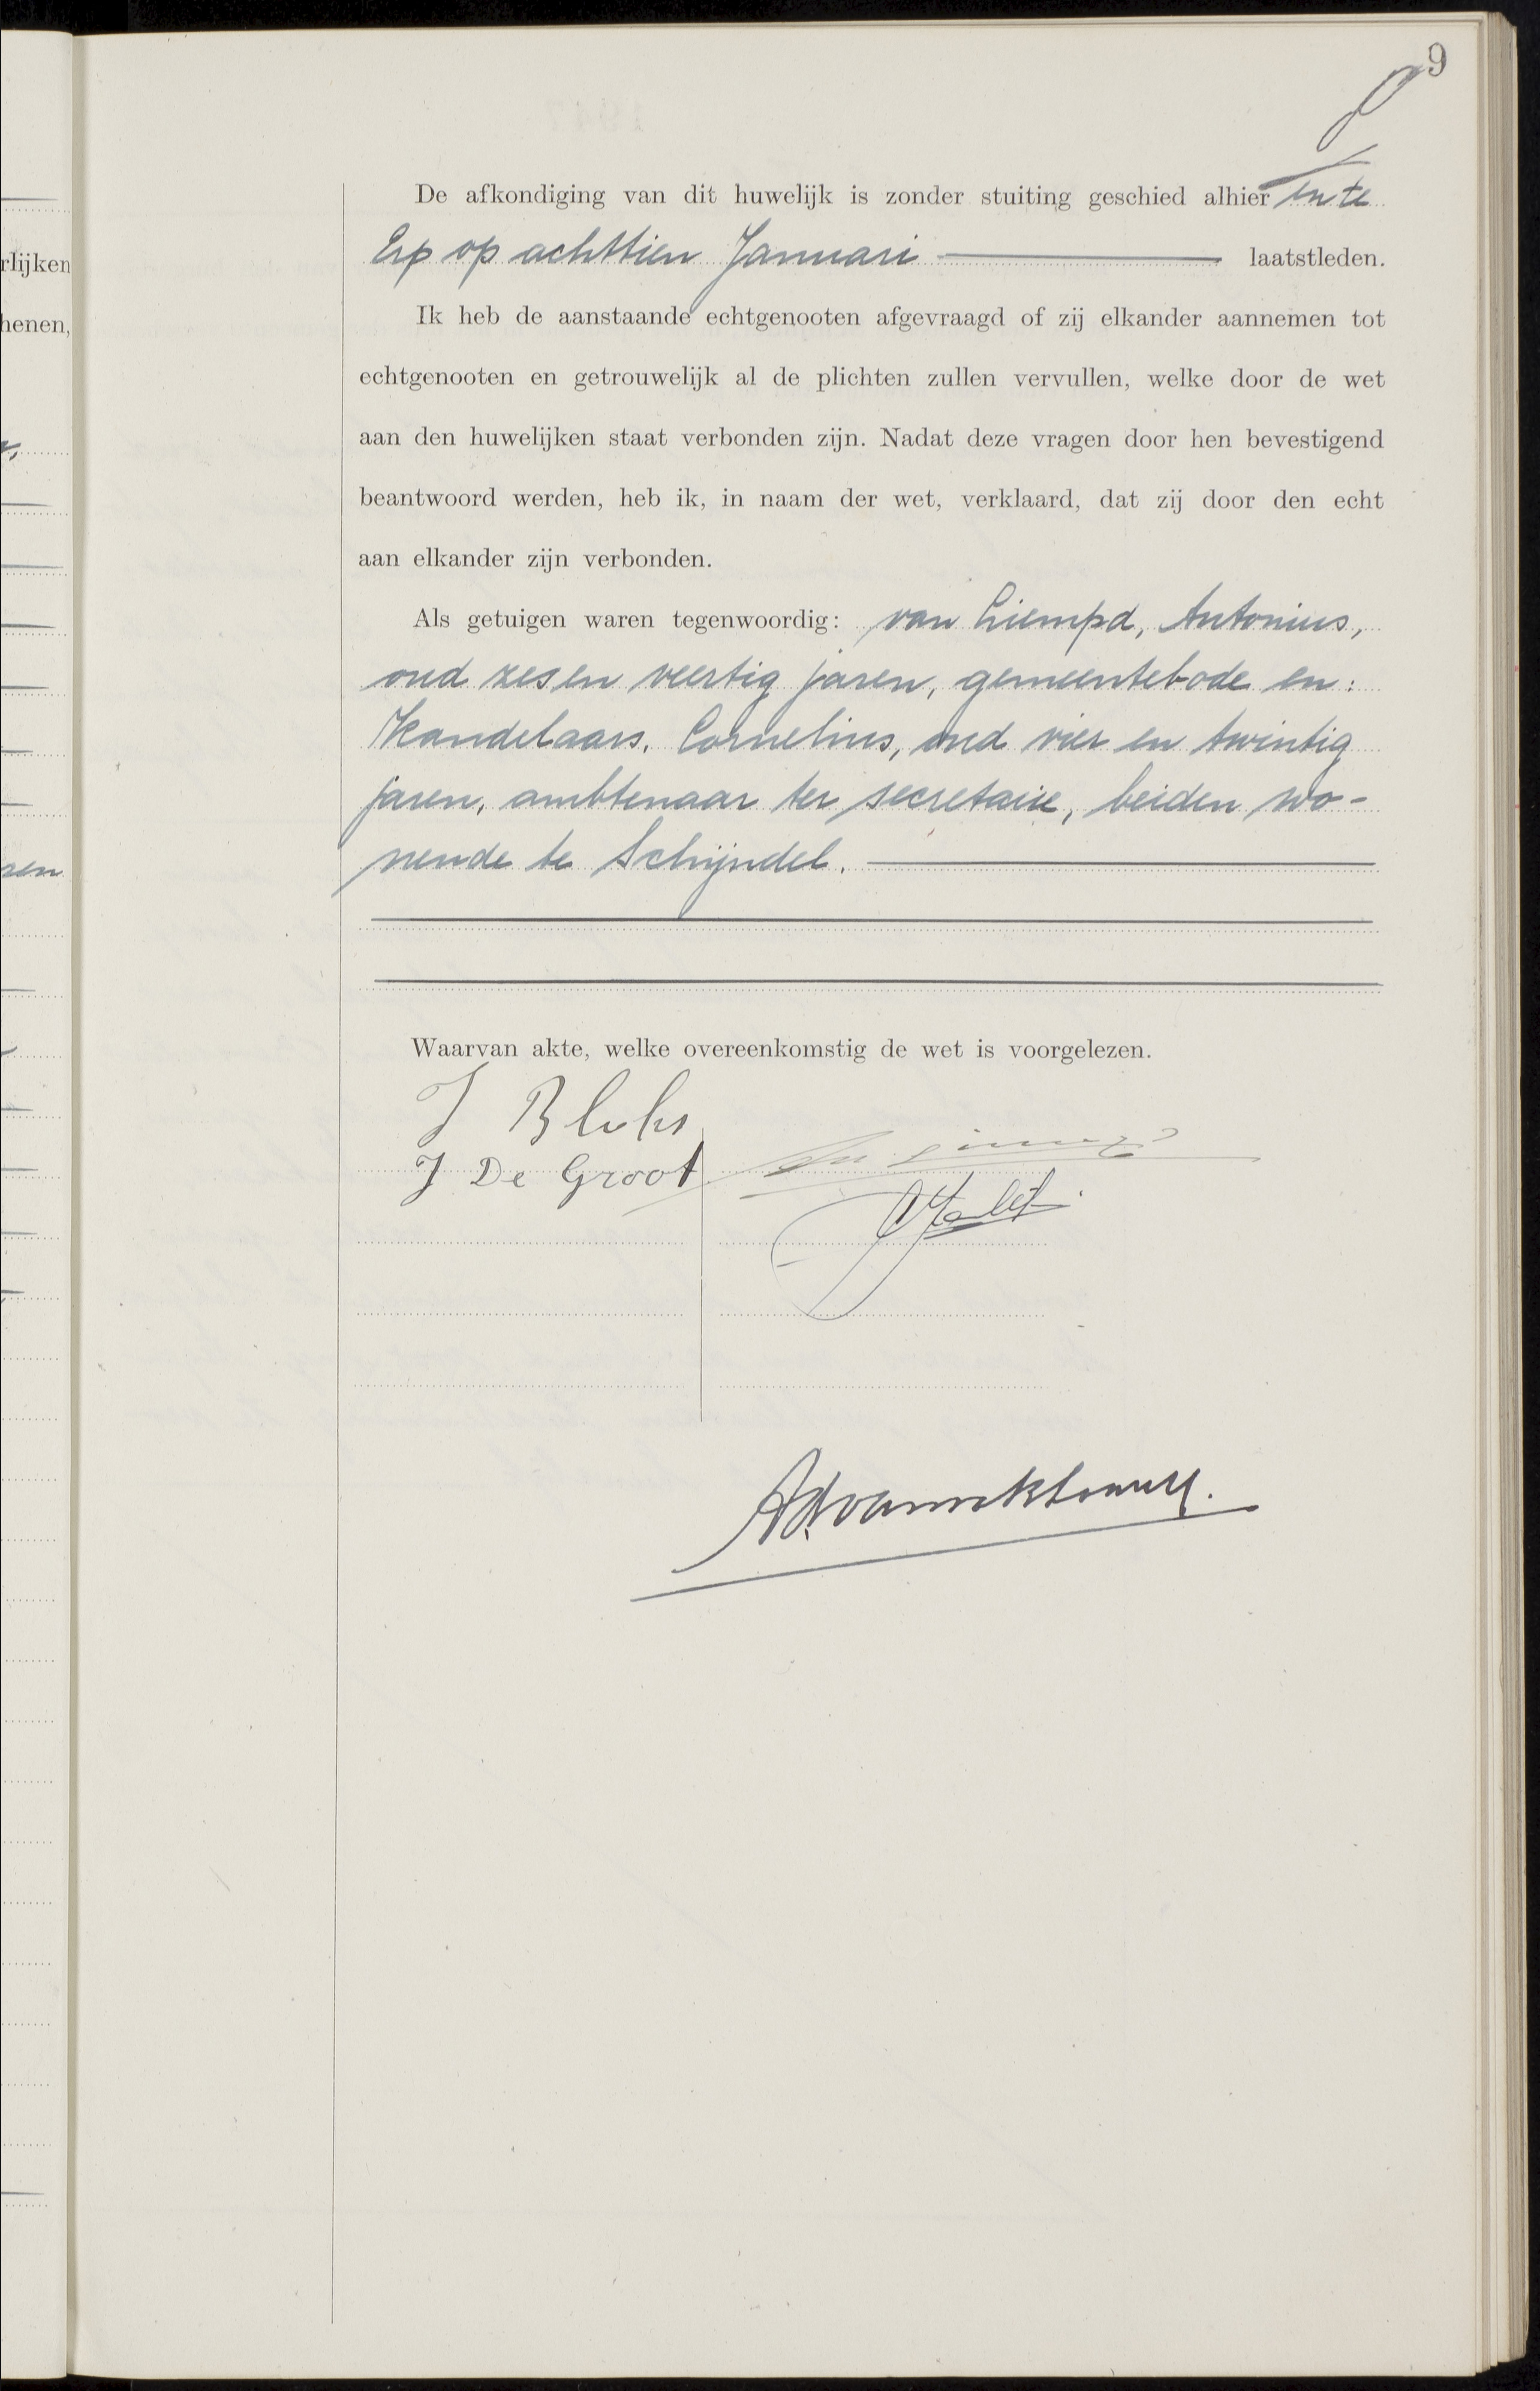 9
De afkondiging van dit huwelijk is zonder stuiting geschied alhier en te
Erp op achttien Januari laatstleden.
Ik heb de aanstaande echtgenooten afgevraagd of zij elkander aannemen tot
echtgenooten en getrouwelijk al de plichten zullen vervullen, welke door de wet
aan den huwelijken staat verbonden zijn. Nadat deze vragen door hen bevestigend
beantwoord werden, heb ik, in naam der wet, verklaard, dat zij door den echt
aan elkander zijn verbonden.
Als getuigen waren tegenwoordig: van Liempd, Antonius,
oud zes en veertig jaren, gemeentebode en:
Kandelaars, Cornelius, oud vier en twintig
jaren, ambtenaar ter secretarie, beiden wo-
nende te Schijndel.
Waarvan akte, welke overeenkomstig de wet is voorgelezen.
J
J De Groot
rlijken
henen,